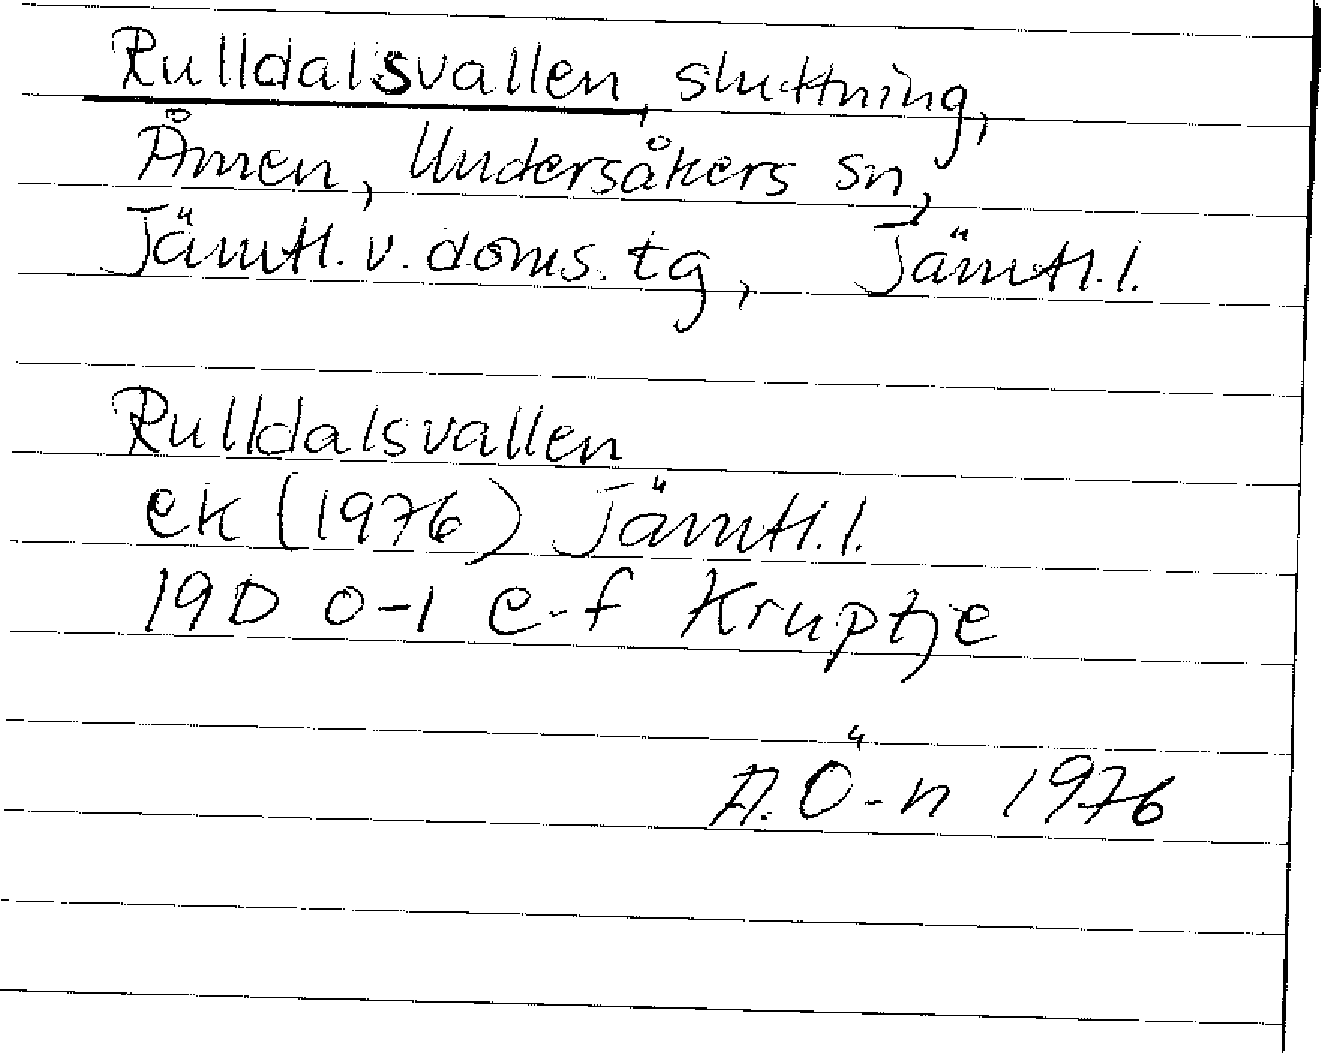 Rulldalsvallen, sluttning,
Ånnen, Undersåkers sn,
Jämtl. v. doms. tg, Jämtl. l.
Rulldalsvallen
ek (1976) Jämtl. l.
19D 0-1 e-f Kruptje
A. Ö-n 1976